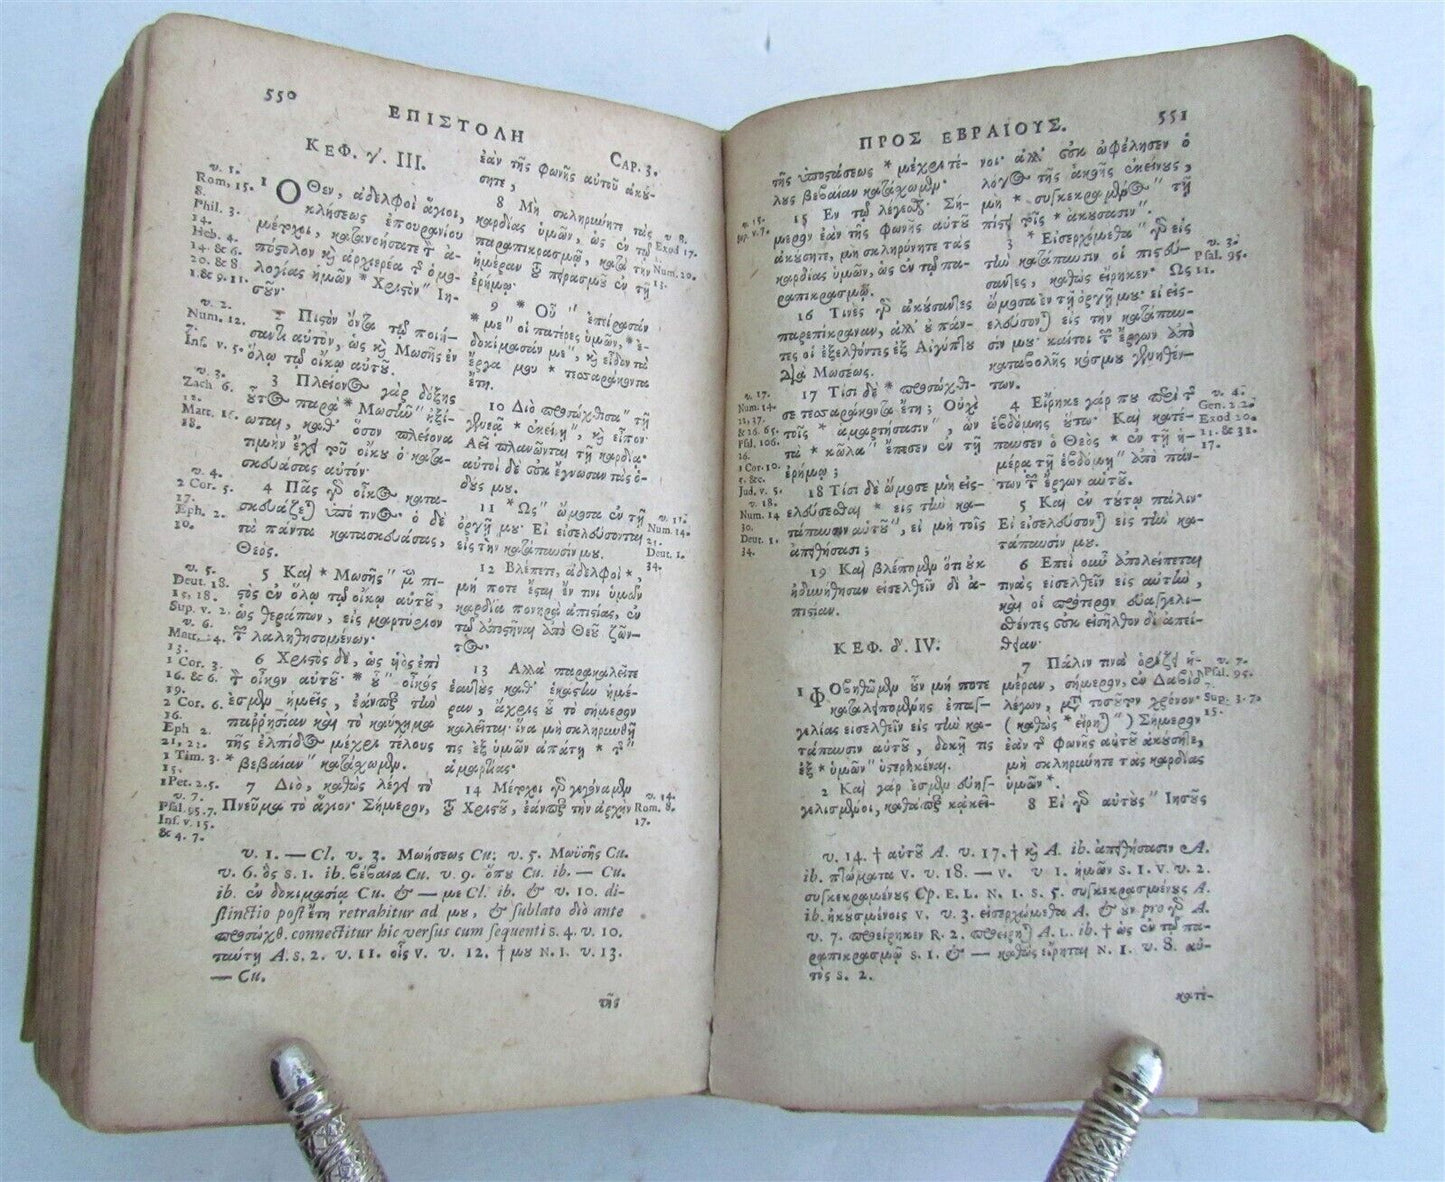 550
ΕΠΙΣΤΟΛΗ
CAP. 3.
ΚΕΦ. γ. III.
1 Ὅθεν, ἀδελφοὶ ἅγιοι,
κλήσεως ἐπουρανίου
μέτοχοι, κατανοήσατε τ ἀ-
πόστολον κὶ ἀρχιερέα τ ὁμο-
λογίας ἡμῶν * Χριστὸν" Ἰη-
σοῦν·
2 Πιστὸν ὄντα τῷ ποιή-
σαντι αὐτὸν, ὡς κὶ Μωσῆς ἐν
ὅλῳ τῷ οἴκῳ αὐτοῦ.
3 Πλείονος γὰρ δόξης
οὗτος παρὰ * Μωσῆν" ἠξί-
ωται, καθ' ὅσον πλείονα
τιμὴν ἔχει τοῦ οἴκου ὁ κατα-
σκευάσας αὐτόν·
4 Πᾶς γὰρ οἶκος κατα-
σκευάζεται ὑπό τινος· ὁ δὲ
τὰ πάντα κατασκευάσας,
Θεός.
5 Καὶ * Μωσῆς" μὲν πι-
στὸς ἐν ὅλῳ τῷ οἴκῳ αὐτοῦ,
ὡς θεράπων, εἰς μαρτύριον
τ λαληθησομένων·
6 Χριστὸς δὲ, ὡς υἱὸς ἐπὶ
τ οἶκον αὐτοῦ· * οὗ" οἶκός
ἐσμεν ἡμεῖς, ἐάνπερ τὴν
παῤῥησίαν καὶ τὸ καύχημα
τῆς ἐλπίδος μέχρι τέλους
* βεβαίαν" κατάσχωμεν.
7 Διὸ, καθὼς λέγει τὸ
Πνεῦμα τὸ ἅγιον· Σήμερον,
ἐὰν τῆς φωνῆς αὐτοῦ ἀκού-
σητε,
8 Μὴ σκληρύνητε τὰς
καρδίας ὑμῶν, ὡς ἐν τῷ
παραπικρασμῷ, κατὰ τὴν
ἡμέραν τοῦ πειρασμοῦ ἐν τῇ
ἐρήμῳ·
9 * Οὗ" ἐπείρασάν
* με" οἱ πατέρες ὑμῶν, * ἐ-
δοκίμασάν με", κὶ εἶδον τὰ
ἔργα μου * τεσσαράκοντα
ἔτη.
10 Διὸ * προσώχθισα" τῇ
γενεᾷ * ἐκείνῃ", κὶ εἶπον·
Ἀεὶ πλανῶνται τῇ καρδίᾳ·
αὐτοὶ δὲ οὐκ ἔγνωσαν τὰς ὁ-
δούς μου.
11 * Ὡς" ὤμοσα ἐν τῇ
ὀργῇ μου· Εἰ εἰσελεύσονται
εἰς τὴν κατάπαυσίν μου.
12 Βλέπετε, ἀδελφοὶ *,
μή ποτε ἔσται ἔν τινι ὑμῶν
καρδία πονηρὰ ἀπιστίας, ἐν
τῷ ἀποστῆναι ἀπὸ Θεοῦ ζῶν-
τος·
13 Ἀλλὰ παρακαλεῖτε
ἑαυτοὺς καθ' ἑκάστην ἡμέ-
ραν, ἄχρις οὗ τὸ σήμερον
καλεῖται· ἵνα μὴ σκληρυνθῇ
τις ἐξ ὑμῶν ἀπάτῃ * τ"
ἁμαρτίας·
14 Μέτοχοι γὰρ γεγόναμεν
τοῦ Χριστοῦ, ἐάνπερ τὴν ἀρχὴν
v. 1.
Rom, 15.
8.
Phil. 3.
14.
Heb. 4.
14. & 6.
20. & 8.
1. & 9. 11.
v. 2.
Num. 12.
7.
Inf. v. 5.
v. 3.
Zach 6.
12.
Matt. 16.
18.
v. 4.
2 Cor. 5.
17.
Eph. 2.
10.
v. 5.
Deut. 18.
15, 18.
Sup. v. 2.
v. 6.
Matt. 24.
13.
1 Cor. 3.
16. & 6.
19.
2 Cor. 6.
16.
Eph 2.
21, 22.
1 Tim. 3.
15.
1 Pet. 2. 5.
v. 7.
Psal. 95. 7.
Inf. v. 15.
& 4. 7.
v. 8.
Exod 17.
Num. 20.
13.
v. 11.
Num. 14.
21.
Deut. 1.
34.
v. 14.
Rom. 8.
17.
v. 1. — Cl. v. 3. Μωήσεως Cu: v. 5. Μωϋσῆς Cu.
v. 6. ὃς S. 1. ib. βέβαια Cu. v. 9. ὅπου Cu. ib. — Cu.
ib. ἐν δοκιμασίᾳ Cu. & — με Cl. ib. & v. 10. di-
stinctio post ἔτη retrahitur ad μου, & sublato διὸ ante
προσώχθ. connectitur hic versus cum sequenti S. 4. v. 10.
ταύτῃ A. S. 2. v. 11. οἷς V. v. 12. † μου N. 1. v. 13.
— Cu.
τῆς
551
ΠΡΟΣ ΕΒΡΑΙΟΥΣ.
τῆς ὑποστάσεως * μέχρι τέ-
λους βεβαίαν κατάσχωμεν.
15 Ἐν τῷ λέγεσθαι· Σή-
μερον ἐὰν τῆς φωνῆς αὐτοῦ
ἀκούσητε, μὴ σκληρύνητε τὰς
καρδίας ὑμῶν, ὡς ἐν τῷ πα-
ραπικρασμῷ.
16 Τινὲς γὰρ ἀκούσαντες
παρεπίκραναν, ἀλλ' οὐ πάν-
τες οἱ ἐξελθόντες ἐξ Αἰγύπτου
διὰ Μωσέως.
17 Τίσι δὲ * προσώχθι-
σε τεσσαράκοντα ἔτη; Οὐχὶ
τοῖς * ἁμαρτήσασιν", ὧν
τὰ * κῶλα" ἔπεσεν ἐν τῇ
ἐρήμῳ;
18 Τίσι δὲ ὤμοσε μὴ εἰσ-
ελεύσεσθαι * εἰς τὴν κα-
τάπαυσιν αὐτοῦ", εἰ μὴ τοῖς
ἀπειθήσασι;
19 Καὶ βλέπομεν ὅτι οὐκ
ἠδυνήθησαν εἰσελθεῖν δι' ἀ-
πιστίαν.
ΚΕΦ. δ. IV.
1 Φοβηθῶμεν οὖν μή ποτε
καταλειπομένης ἐπαγ-
γελίας εἰσελθεῖν εἰς τὴν κα-
τάπαυσιν αὐτοῦ, δοκῇ τις
ἐξ * ὑμῶν" ὑστερηκέναι.
2 Καὶ γάρ ἐσμεν εὐηγ-
γελισμένοι, καθάπερ κἀκεῖ-
νοι· ἀλλ' οὐκ ὠφέλησεν ὁ
λόγος τῆς ἀκοῆς ἐκείνους,
μὴ * συγκεκραμένος" τῇ
πίστει τοῖς * ἀκούσασιν".
3 * Εἰσερχόμεθα" γὰρ εἰς
τὴν κατάπαυσιν οἱ πιστεύ-
σαντες, καθὼς εἴρηκεν· Ὡς
ὤμοσα ἐν τῇ ὀργῇ μου· εἰ εἰσ-
ελεύσονται εἰς τὴν κατάπαυ-
σίν μου· καίτοι τ ἔργων ἀπὸ
καταβολῆς κόσμου γενηθέν-
των.
4 Εἴρηκε γάρ που περὶ τ
ἑβδόμης οὕτω· Καὶ κατέ-
παυσεν ὁ Θεὸς * ἐν τῇ ἡ-
μέρᾳ τῇ ἑβδόμῃ" ἀπὸ πάν-
των τ ἔργων αὐτοῦ.
5 Καὶ ἐν τούτῳ πάλιν·
Εἰ εἰσελεύσονται εἰς τὴν κα-
τάπαυσίν μου.
6 Ἐπεὶ οὖν ἀπολείπεται
τινὰς εἰσελθεῖν εἰς αὐτὴν,
καὶ οἱ πρότερον εὐαγγελι-
σθέντες οὐκ εἰσῆλθον δι' ἀπεί-
θειαν·
7 Πάλιν τινὰ ὁρίζει ἡ-
μέραν, σήμερον, ἐν Δαβὶδ
λέγων, μετὰ τοσοῦτον χρόνον·
(καθὼς * εἴρηται") Σήμερον
ἐὰν τ φωνῆς αὐτοῦ ἀκούσητε,
μὴ σκληρύνητε τὰς καρδίας
ὑμῶν *.
8 Εἰ γὰρ αὐτοὺς" Ἰησοῦς
v. 15.
Sup. v. 7.
v. 17.
Num. 14.
22, 37.
& 26. 65.
Psal. 106.
26.
1 Cor. 10.
5. &c.
Jud. v. 5.
v. 18.
Num. 14
30.
Deut. 1.
34.
v. 3.
Psal. 95.
11.
v. 4.
Gen. 2. 2.
Exod 20.
11. & 31.
17.
v. 7.
Psal. 95.
7.
Sup. 3. 7.
15.
v. 14. † αὐτοῦ A. v. 17. † κὶ A. ib. ἀπειθήσασιν A.
ib. πτώματα V. v. 18. — V. v 1. ἡμῶν S. 1. V. v. 2.
συγκεκραμένους Cp. E. L. N. 1. S. 5. συγκεκρασμένους A.
ib. ἠκουσμένοις V. v. 3. εἰσερχώμεθα A. & οὖν pro γὰρ A.
v. 7. προείρηκεν R. 2. προείρηται A. L. ib. † ὡς ἐν τῷ πα-
ραπικρασμῷ S. 1. & — καθὼς εἴρηται N. 1. v. 8. αὐ-
τὸς S. 2.
κατέ-